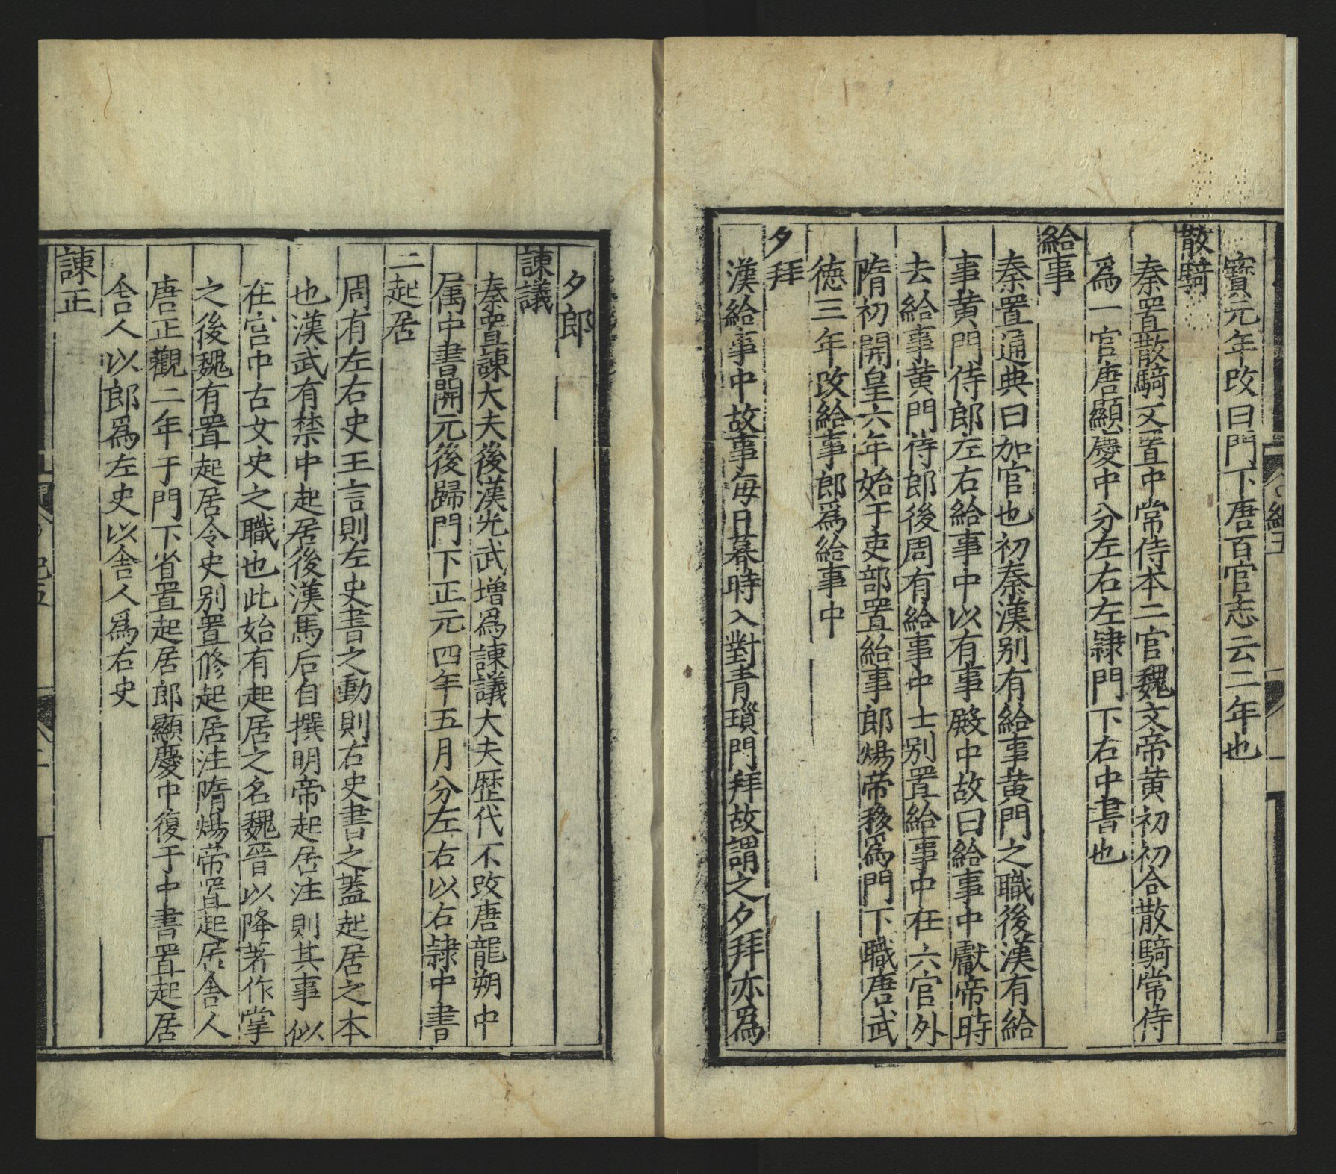 寳元年改曰門下唐百官志云二年也
散騎
秦置散騎又置中常侍本二官魏文帝黄初初合散騎常侍
爲一官唐顯慶中分左右左隷門下右中書也
給事
秦置通典曰加官也初秦漢别有給事黄門之職後漢有給
事黄門侍郎左右給事中以有事殿中故曰給事中獻帝時
去給事黄門侍郎後周有給事中士别置給事中在六官外
隋初開皇六年始于吏部置給事郎煬帝移爲門下職唐武
德三年改給事郎爲給事中
夕拜
漢給事中故事每日暮時入對青瑣門拜故謂之夕拜亦爲
夕郎
諫議
秦置諫大夫後漢光武增爲諫議大夫歴代不改唐龍朔中
属中書開元後歸門下正元四年五月分左右以右隷中書
二起居
周有左右史王言則左史書之動則右史書之蓋起居之本
也漢武有禁中起居後漢馬后自撰明帝起居注則其事似
在宫中古女史之職也此始有起居之名魏晉以降著作掌
之後魏有置起居令史别置修起居注隋煬帝置起居舎人
唐正觀二年于門下省置起居郎顯慶中復于中書置起居
舎人以郎爲左史以舎人爲右史
諫正